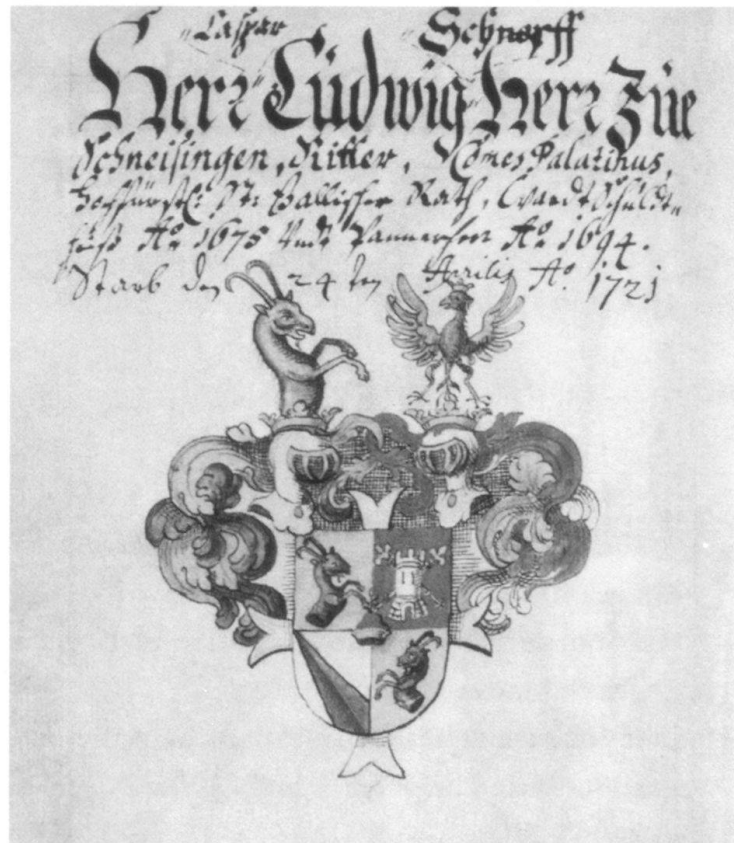 Caspar Schnorff
Herr Ludwig Herr Züe
Schneisingen, Ritter, Comes Palatinus,
Hochfürstl: St: Gallischer Rath, Schuldt„
heiß A:o 1675 Undt Pannerherr A:o 1694.
Starb den 24 ten Aprilis A:o 1721